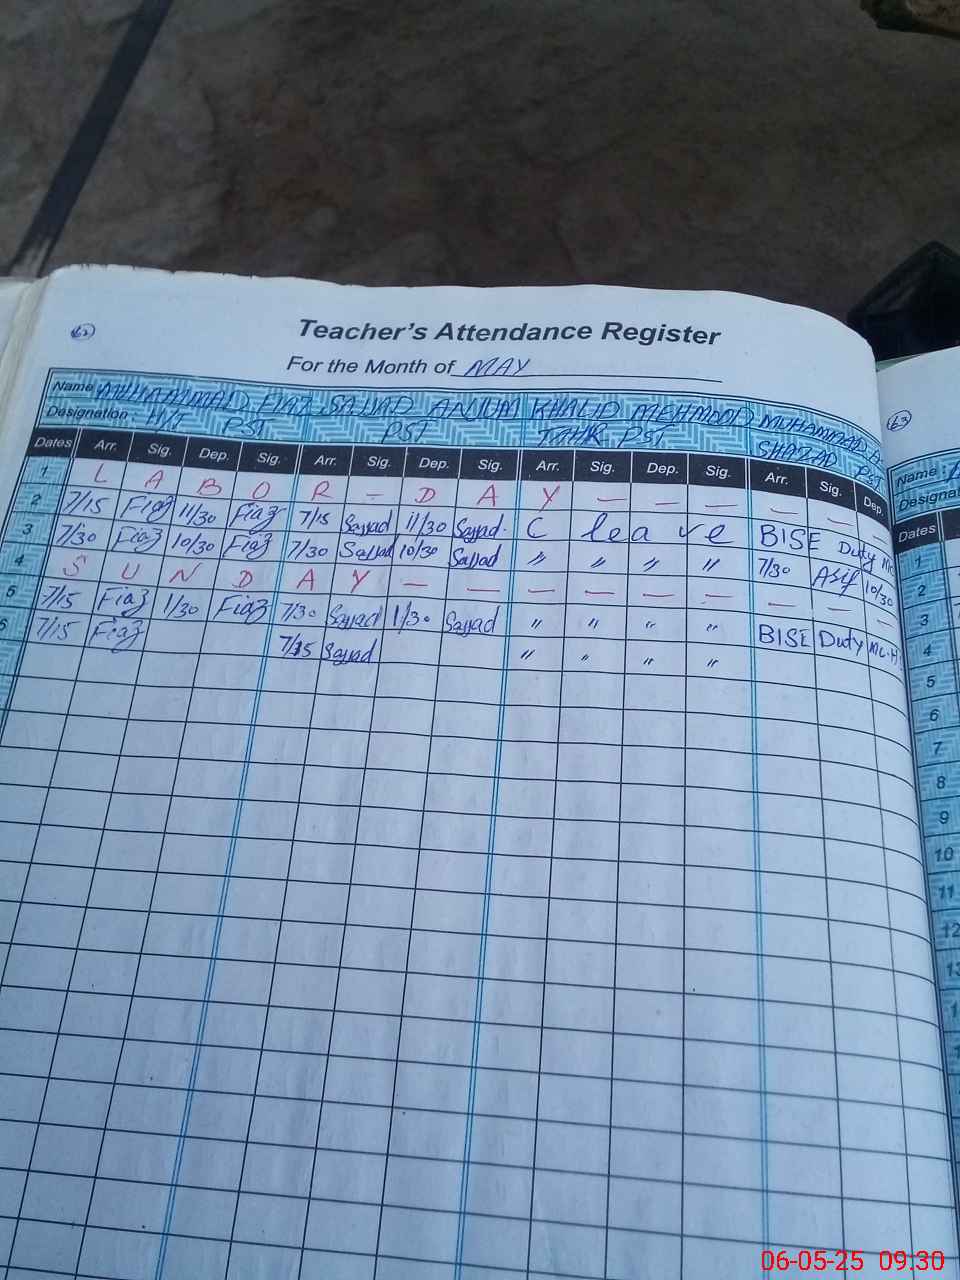 62
Teacher's Attendance Register
For the Month of MAY
Name MUHAMMAD FIAZ SAJJAD ANJUM KHALID MEHMOOD MUHAMMAD A
Designation H/T PST PST TAHIR PST SHAZAD PST
Dates Arr. Sig. Dep. Sig. Arr. Sig. Dep. Sig. Arr. Sig. Dep. Sig. Arr. Sig. Dep.
1 L A B O R - D A Y — — — — —
2 7/15 Fiaz 11/30 Fiaz 7/15 Sajjad 11/30 Sajjad. C leave BISE Duty Mc
3 7/30 Fiaz 10/30 Fiaz 7/30 Sajjad 10/30 Sajjad " " " " 7/30 Asif 10/30
4 S U N D A Y — — — — — — — — —
5 7/15 Fiaz 1/30 Fiaz 7/30 Sajjad 1/30 Sajjad " " " " BISE Duty Mc.H
6 7/15 Fiaz 7/15 Sajjad " " " "
63
Name :
Designat
Dates
1
2
3
4
5
6
7
8
9
10
11
12
13
06-05-25 09.30